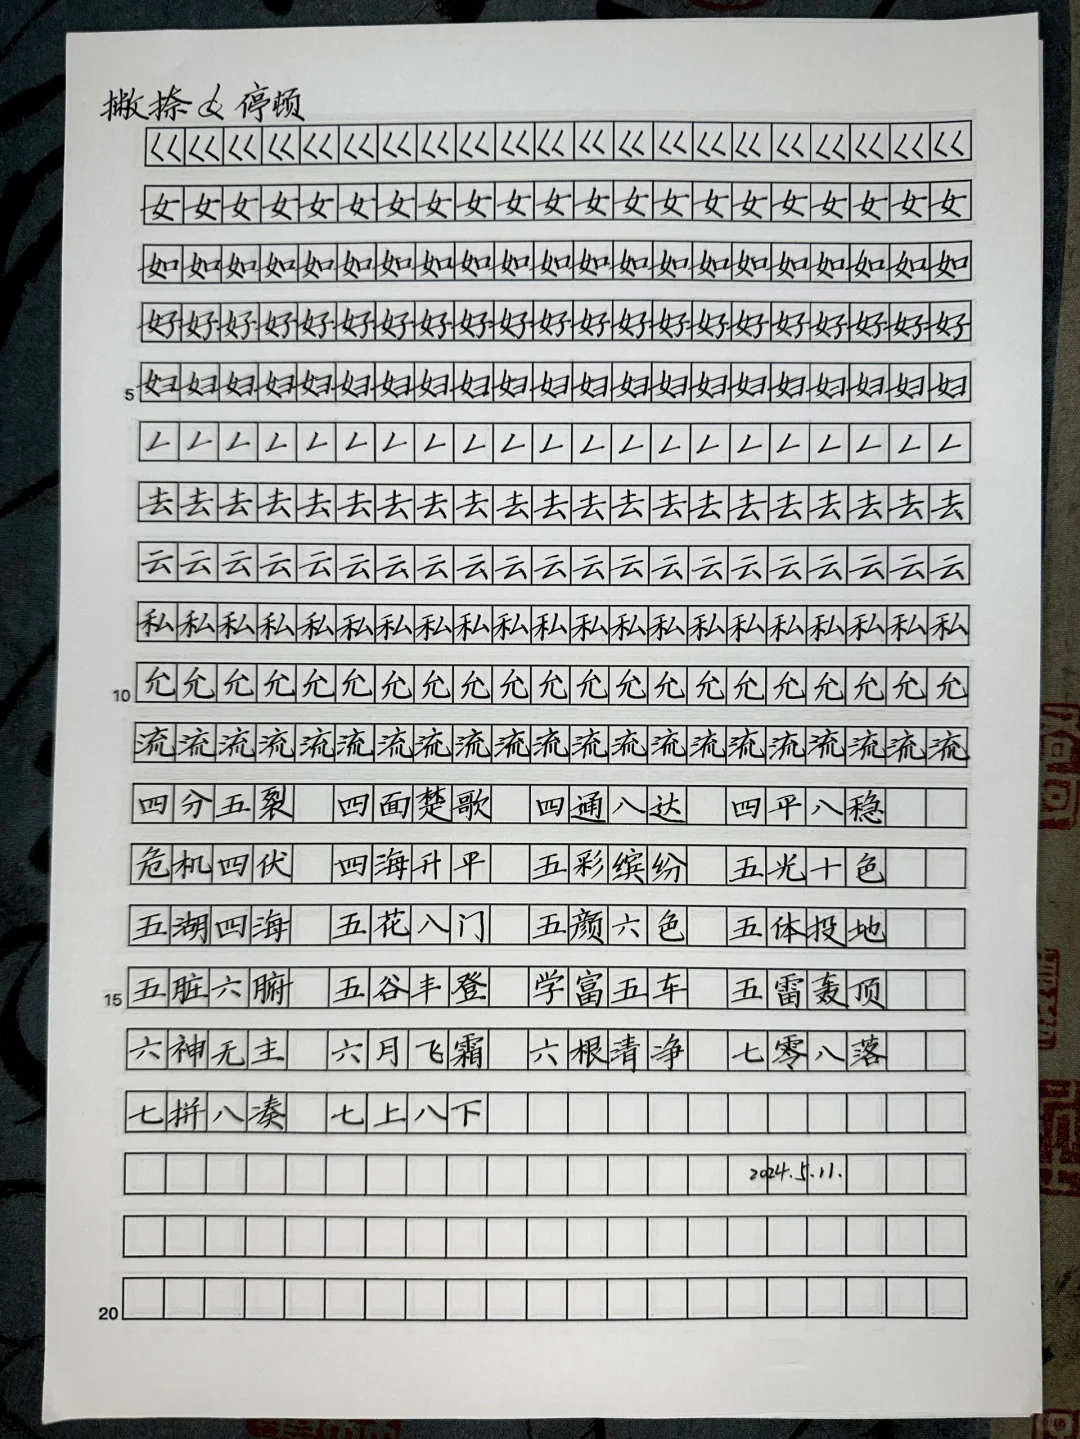 撇捺 停顿
くくくくくくくくくくくくくくくくくくくくくくくくくくくくくくくくくくくくくくくくくく
女女女女女女女女女女女女女女女女女女女女女
如如如如如如如如如如如如如如如如如如如如如
好好好好好好好好好好好好好好好好好好好好好
5 妇妇妇妇妇妇妇妇妇妇妇妇妇妇妇妇妇妇妇妇妇
ㄥㄥㄥㄥㄥㄥㄥㄥㄥㄥㄥㄥㄥㄥㄥㄥㄥㄥㄥㄥㄥ
去去去去去去去去去去去去去去去去去去去去去
云云云云云云云云云云云云云云云云云云云云云
私私私私私私私私私私私私私私私私私私私私私
10 允允允允允允允允允允允允允允允允允允允允允
流流流流流流流流流流流流流流流流流流流流流
四分五裂 四面楚歌 四通八达 四平八稳
危机四伏 四海升平 五彩缤纷 五光十色
五湖四海 五花八门 五颜六色 五体投地
15 五脏六腑 五谷丰登 学富五车 五雷轰顶
六神无主 六月飞霜 六根清净 七零八落
七拼八凑 七上八下
2024.5.11.
20